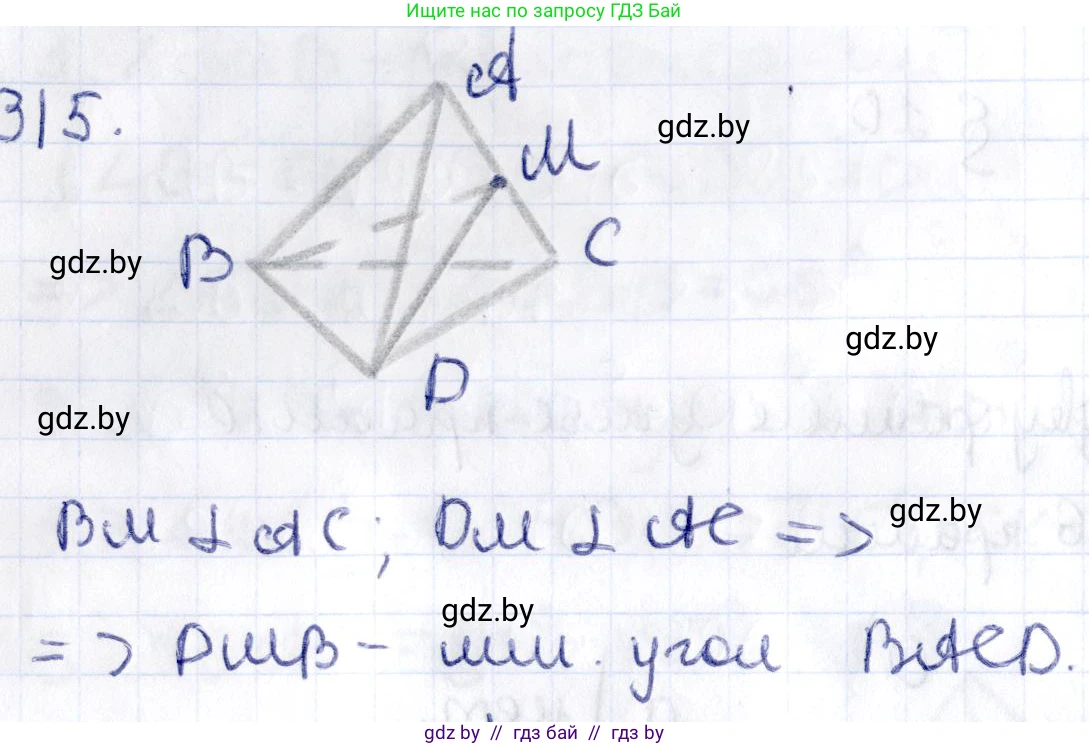 Ищите нас по запросу ГДЗ Бай
315.
A
M
gdz.by
B
C
gdz.by
gdz.by
D
gdz.by
BM ⊥ AC; DM ⊥ AC =>
gdz.by
gdz.by
=> DMB - лин. угол BACD.
gdz.by // гдз бай // гдз by